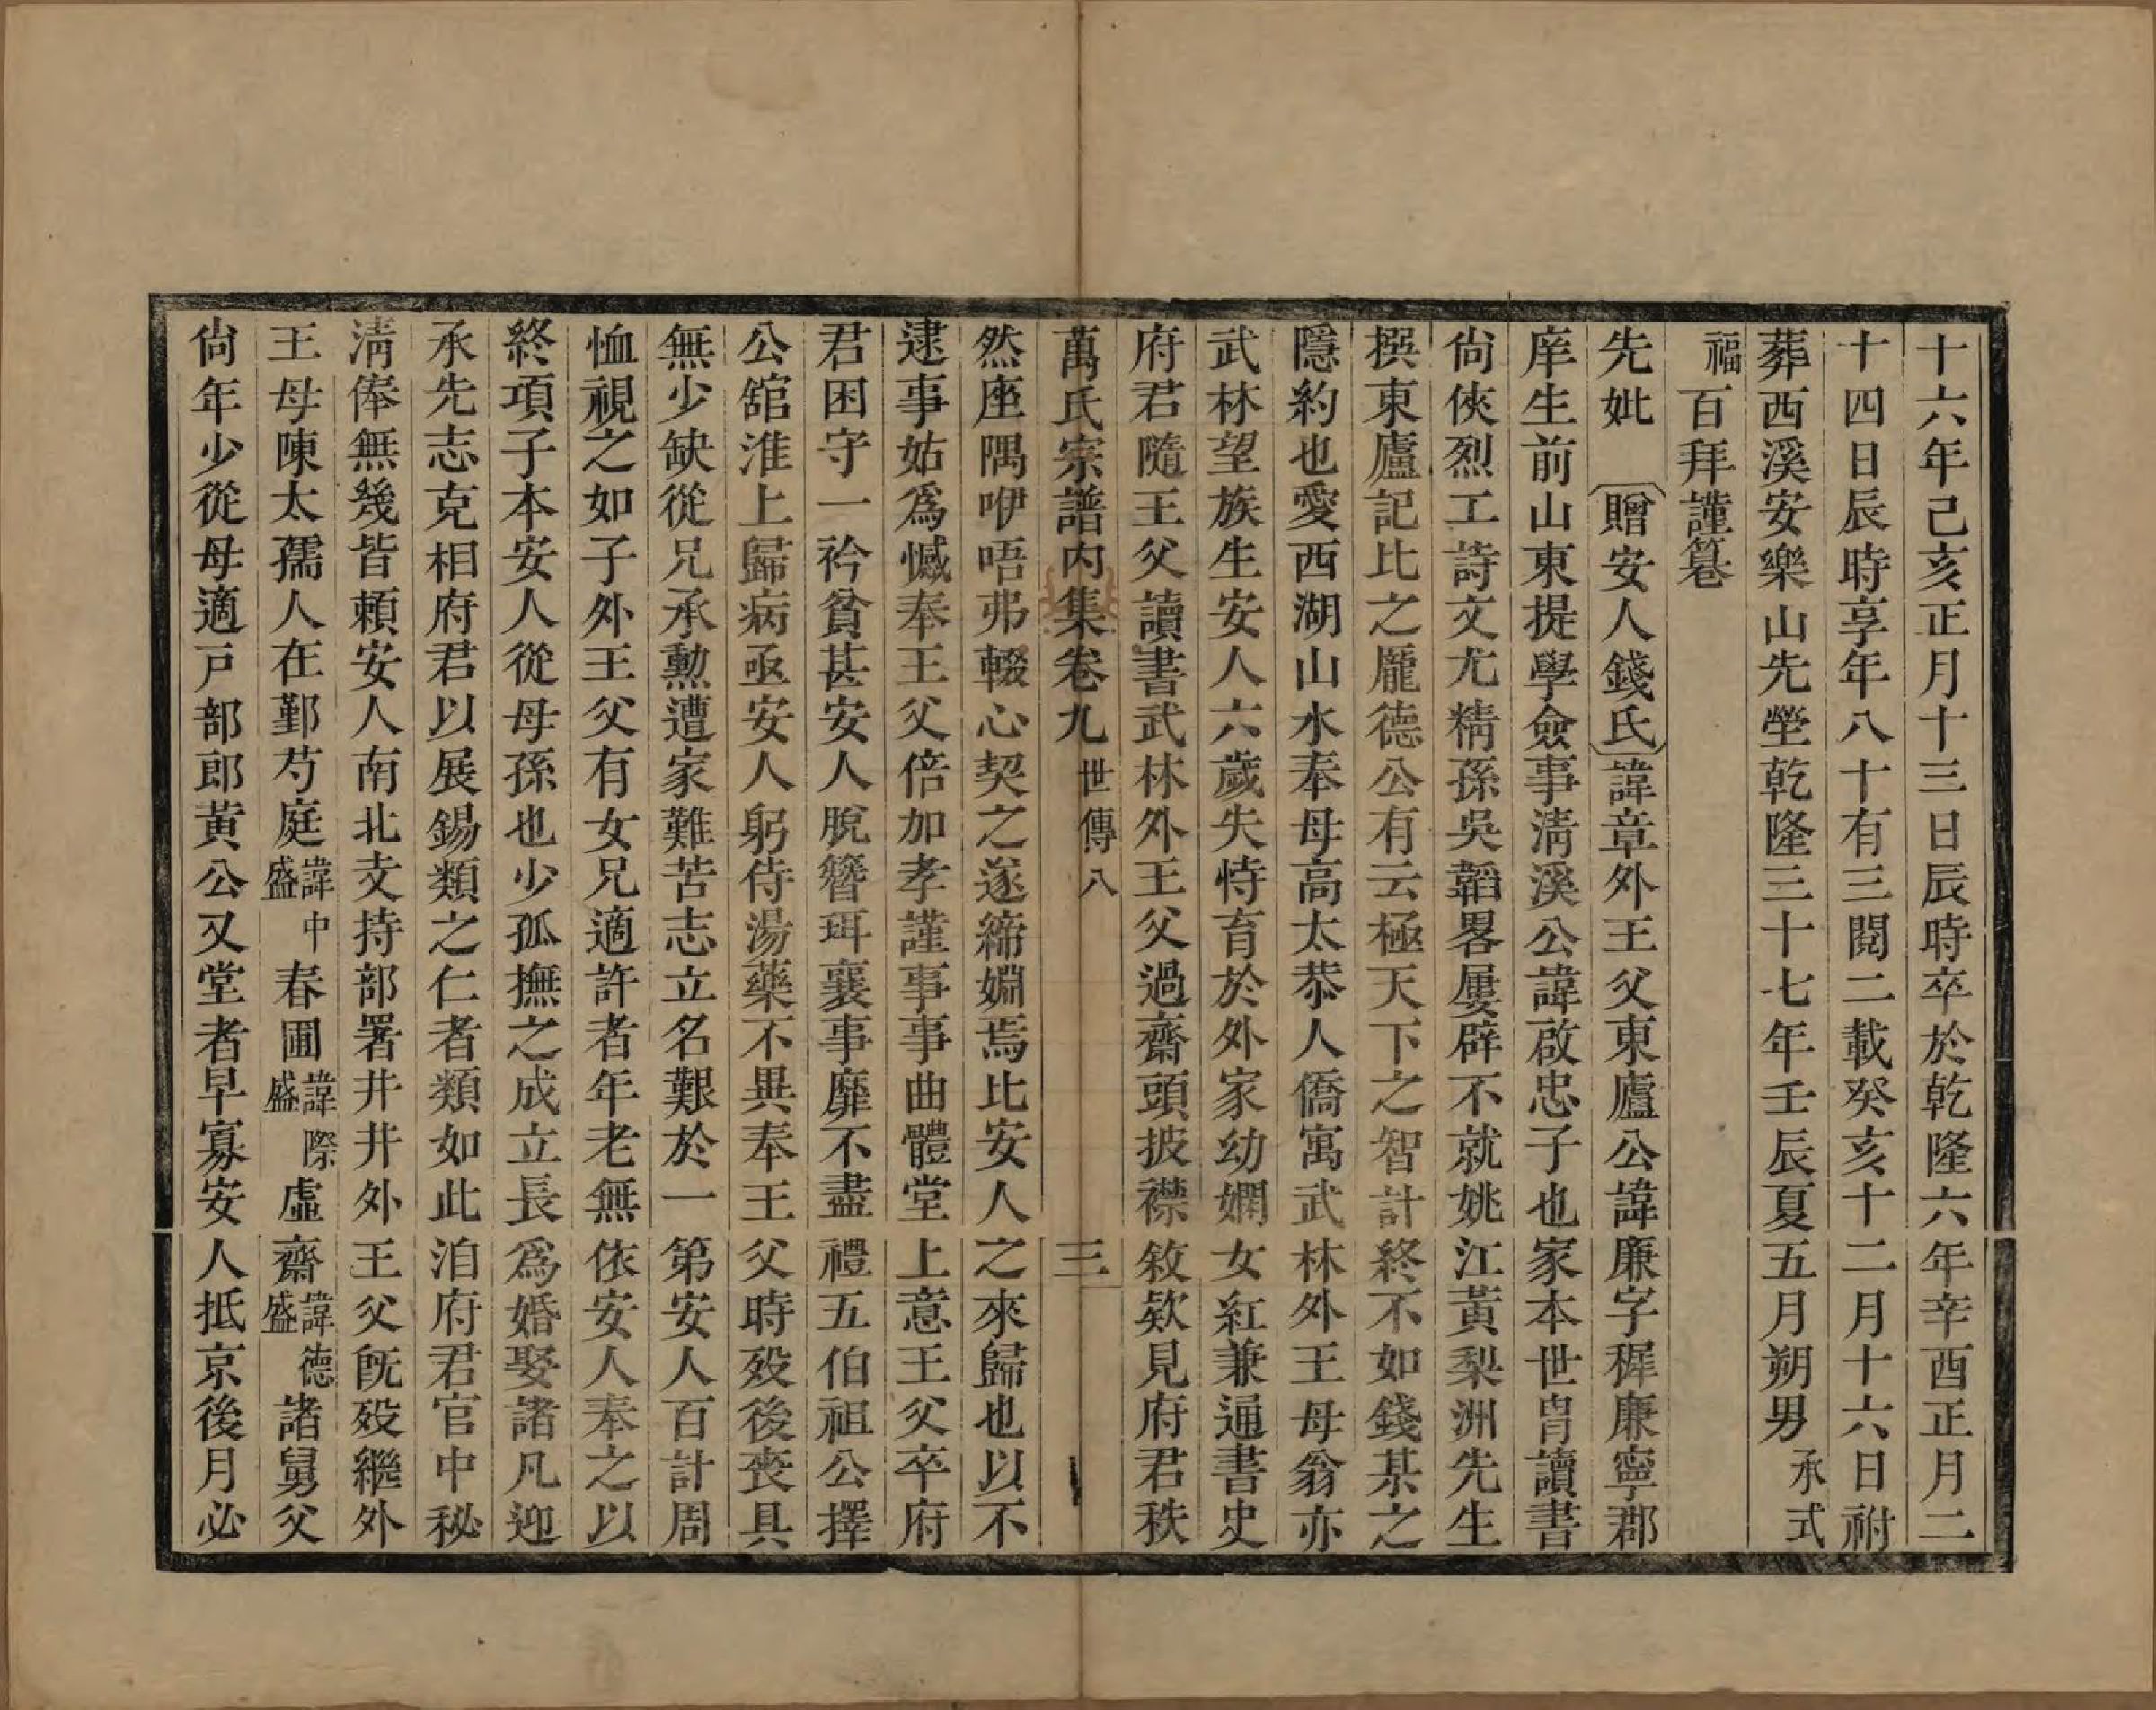 十六年己亥正月十三日辰時卒於乾隆六年辛酉正月二
十四日辰時享年八十有三閱二載癸亥十二月十六日祔
葬西溪安樂山先塋乾隆三十七年壬辰夏五月朔男承式
福百拜謹篹
先妣　贈安人錢氏諱章外王父東廬公諱廉字稺廉寧郡
庠生前山東提學僉事淸溪公諱啟忠子也家本世胄讀書
尙俠烈工詩文尤精孫吳韜畧屢辟不就姚江黃梨洲先生
撰東廬記比之龐德公有云極天下之智計終不如錢某之
隱約也愛西湖山水奉母高太恭人僑寓武林外王母翁亦
武林望族生安人六歲失恃育於外家幼嫻女紅兼通書史
府君隨王父讀書武林外王父過齋頭披襟敘欵見府君秩
萬氏宗譜內集卷九　世傳八　三
然座隅咿唔弗輟心契之遂締婣焉比安人之來歸也以不
逮事姑爲憾奉王父倍加孝謹事事曲體堂上意王父卒府
君困守一衿貧甚安人脫簪珥襄事靡不盡禮五伯祖公擇
公舘淮上歸病亟安人躬侍湯藥不異奉王父時歿後喪具
無少缺從兄承勳遭家難苦志立名艱於一第安人百計周
恤視之如子外王父有女兄適許者年老無依安人奉之以
終項子本安人從母孫也少孤撫之成立長爲婚娶諸凡迎
承先志克相府君以展錫類之仁者類如此洎府君官中秘
淸俸無幾皆頼安人南北支持部署井井外王父旣歿繼外
王母陳太孺人在鄞芍庭諱中盛春圃諱際盛虛齋諱德盛諸舅父
尙年少從母適戸部郎黃公又堂者早寡安人抵京後月必